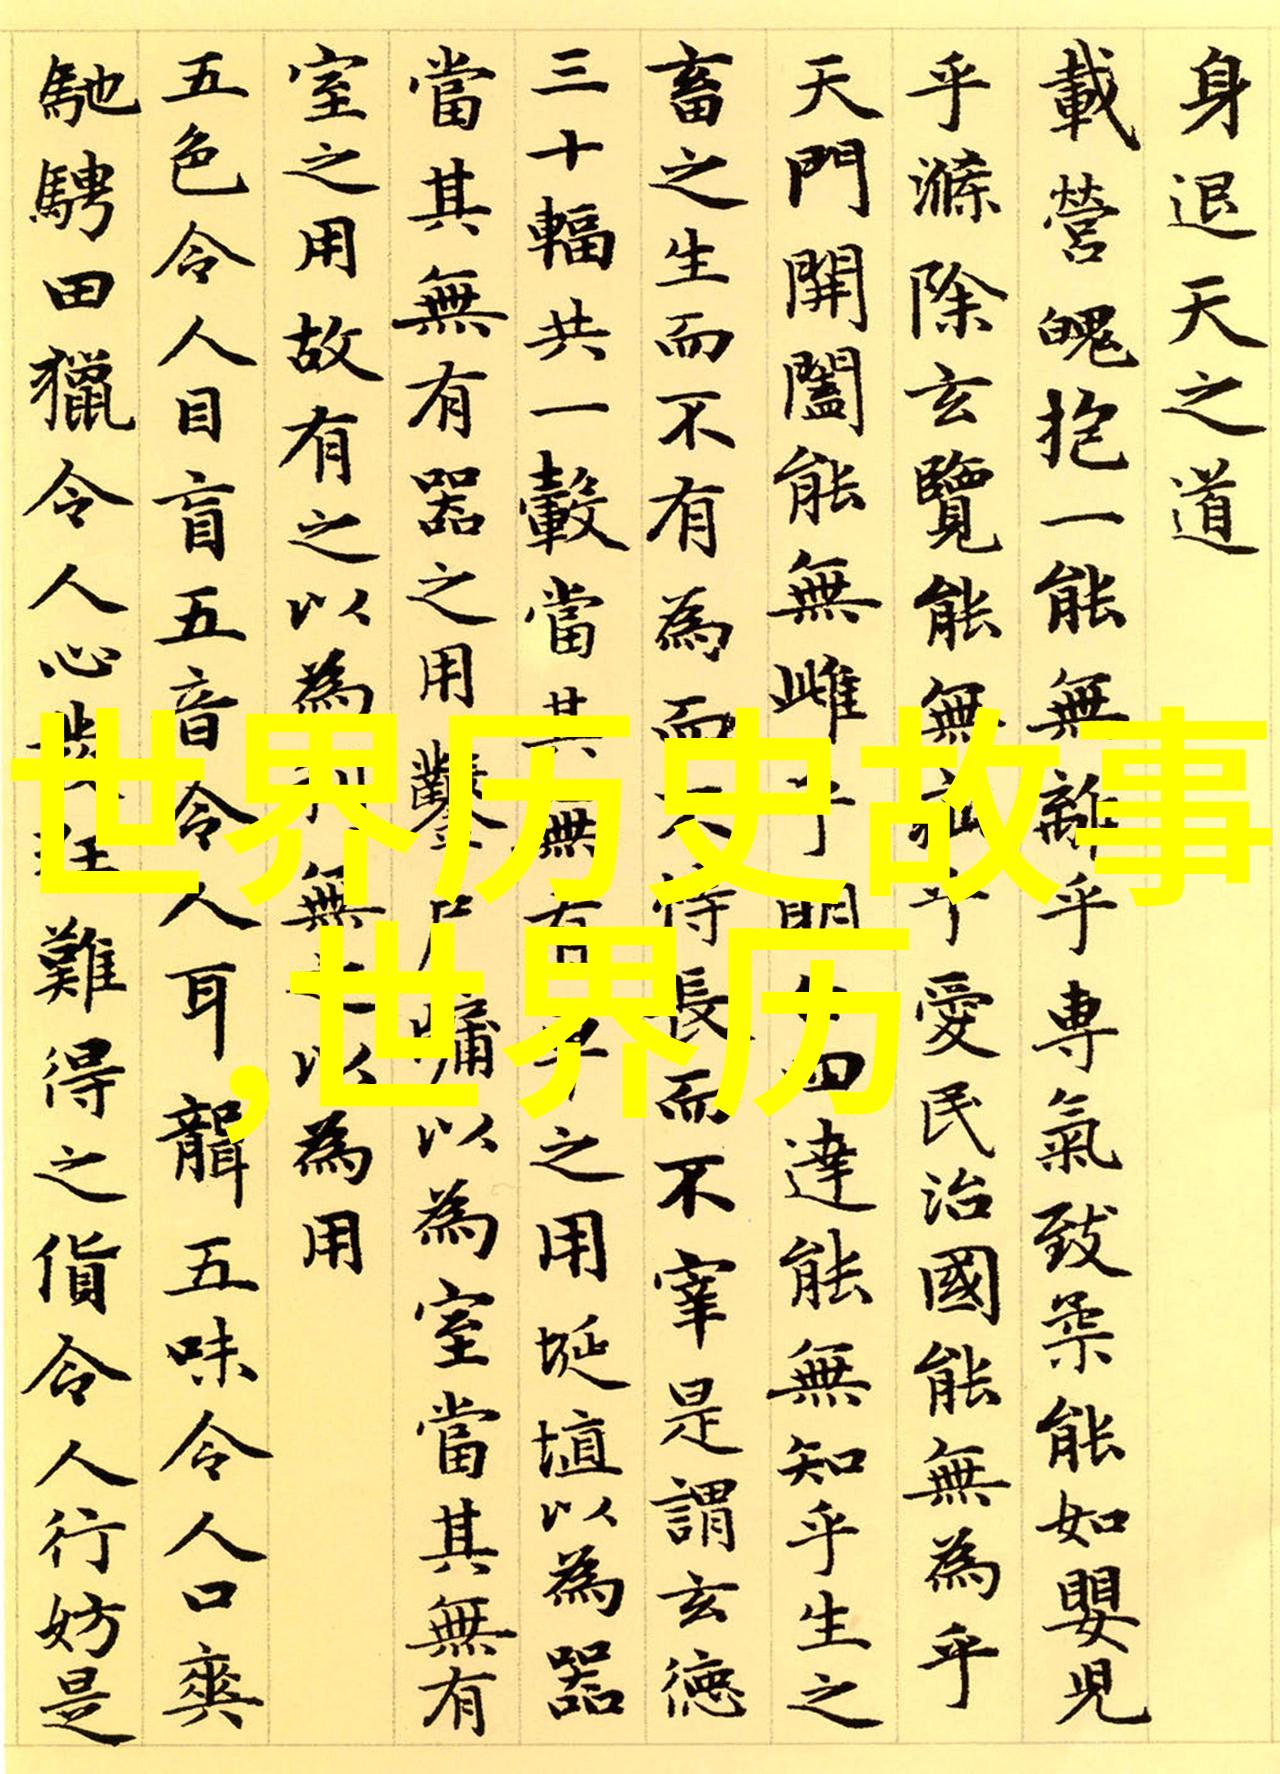 身退天之道
載營魄抱一能無離乎專氣致柔能如嬰兒
乎滌除玄覽能無疵乎愛民治國能無為乎
天門開闔能無雌乎明白四達能無知乎生之
畜之生而不有為而不恃長而不宰是謂玄德
三十輻共一轂當其無有車之用埏埴以為器
當其無有器之用鑿戶牖以為室當其無有
室之用故有之以為利無之以為用
五色令人目盲五音令人耳聾五味令人口爽
馳騁田獵令人心發狂難得之貨令人行妨是
世界历史故事
,世界历